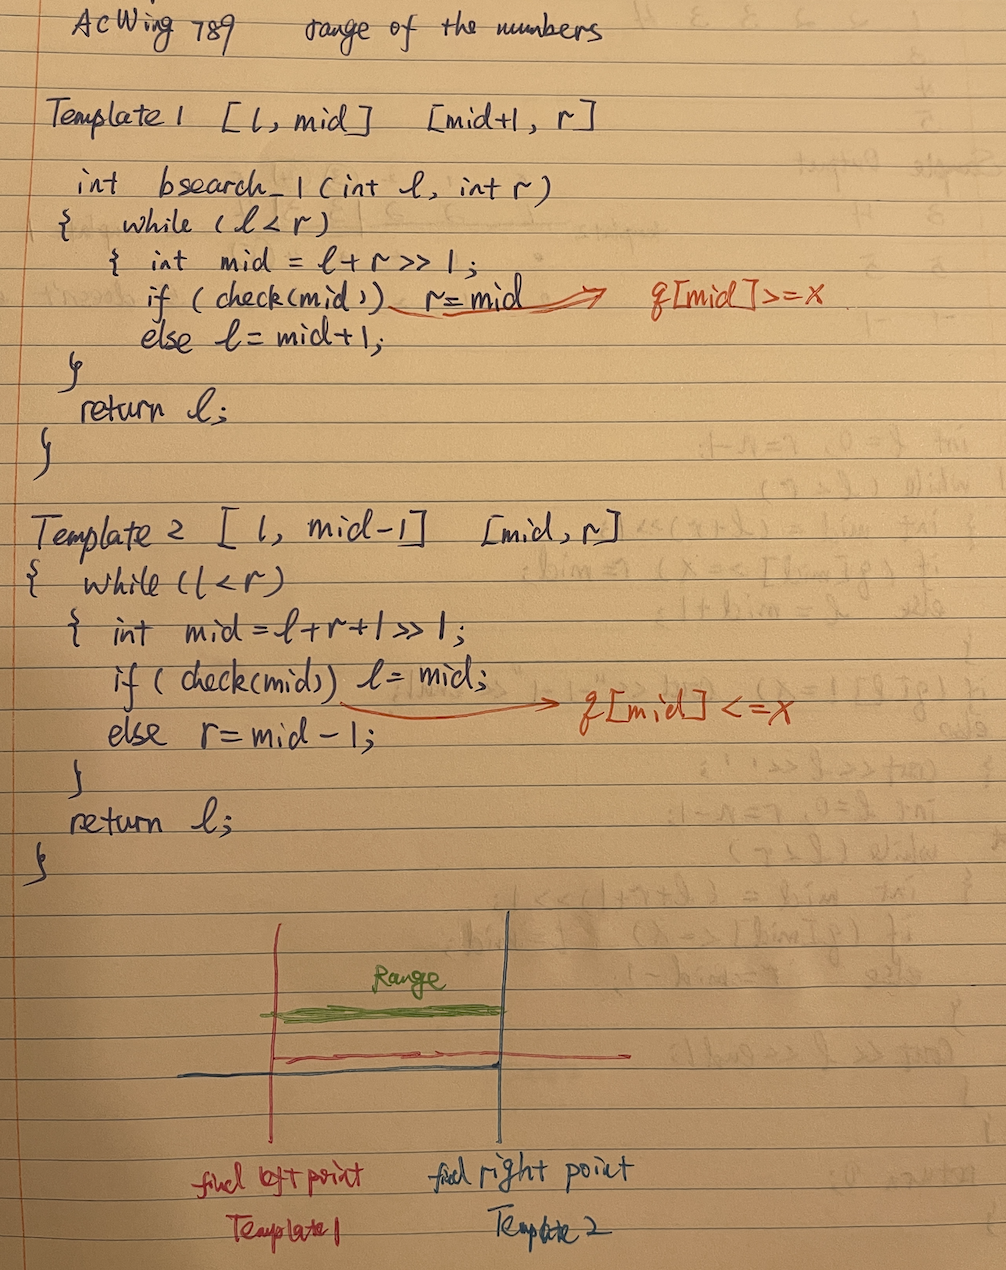 AcWing 789 range of the numbers
Template 1 [l, mid] [mid+1, r]
int bsearch_1(int l, int r)
{ while (l<r)
{ int mid = l+r>>1;
if (check(mid)) r=mid q[mid]>=x
else l=mid+1;
}
return l;
}
Template 2 [l, mid-1] [mid, r]
{ while (l<r)
{ int mid=l+r+1>>1;
if (check(mid)) l=mid; q[mid]<=x
else r=mid-1;
}
return l;
}
Range
find left point find right point
Template 1 Template 2